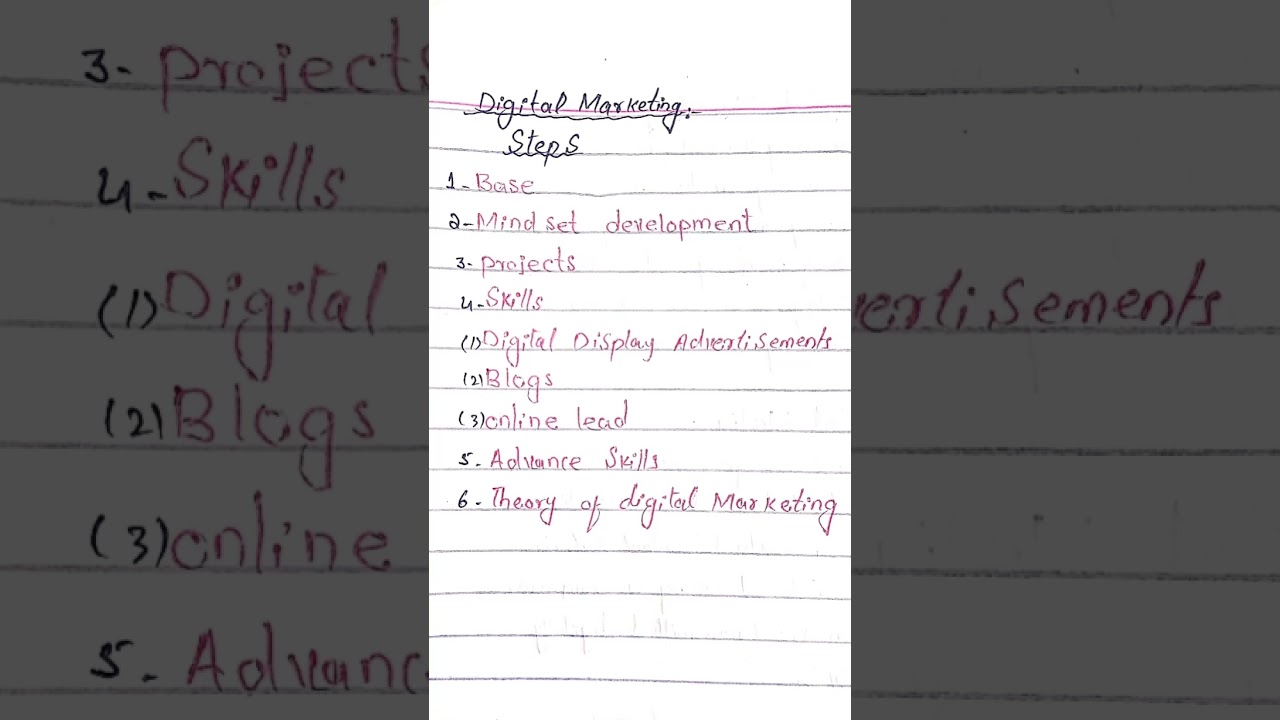 Digital Marketing:-
Steps
1- Base
2- Mind set development
3- projects
4- Skills
(1) Digital Display Advertisements
(2) Blogs
(3) online lead
5- Advance Skills
6- Theory of digital Marketing